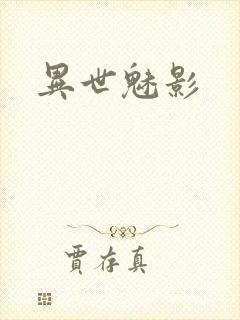 異世魅影
賈存真